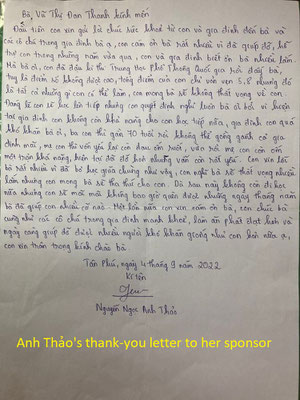 Bà, Vũ Thị Đan Thanh kính mến
Đầu tiên con xin gửi lời chúc sức khoẻ từ con và gia đình đến bà và
các cô chú trong gia đình bà ạ, con cảm ơn bà rất nhiều vì đã giúp đỡ, hỗ
trợ con trong những năm vừa qua, con và gia đình biết ơn bà nhiều lắm
Mà bà ơi, con đã đậu kì thi Trung Học Phổ Thông Quốc gia rồi đấy bà,
tuy là điểm số không được cao, tổng điểm của con chỉ vỏn vẹn 5.8 nhưng đó
là tất cả những gì con có thể làm, con mong bà sẽ không thất vọng về con.
Đáng lẽ con sẽ học lên tiếp nhưng con quyết định nghỉ luôn bà ơi bởi vì hiện
tại gia đình con không còn khả năng cho con học tiếp nữa, gia đình con quá
khó khăn bà ơi, ba con thì gần 70 tuổi rồi không thể gồng gánh cả gia
đình mãi, mẹ con thì vốn yếu lại còn đau ốm suốt, vừa rồi mẹ con còn ốm
một trận khá nặng, hiện tại đã đỡ hơn nhưng vẫn còn rất yếu. Con xin lỗi
bà rất nhiều vì đã bỏ học giữa chừng như vậy, con nghĩ bà sẽ thất vọng nhiều
lắm nhưng con mong bà sẽ tha thứ cho con. Dù sau này không còn đi học
nữa nhưng con sẽ mãi mãi không bao giờ quên được những ngày tháng năm
bà đã giúp con nhiều cỡ nào. Một lần nữa con xin cảm ơn bà, con chúc bà
cùng như các cô chú trong gia đình mạnh khoẻ, làm ăn phát đạt luôn và
ngày càng giúp đỡ được nhiều người khó khăn giống như con hơn nữa ạ,
con xin trân trọng kính chào bà.
Tân Phú, ngày 4 tháng 9 năm 2022
Kí tên
Nguyễn Ngọc Anh Thảo
Anh Thảo's thank-you letter to her sponsor